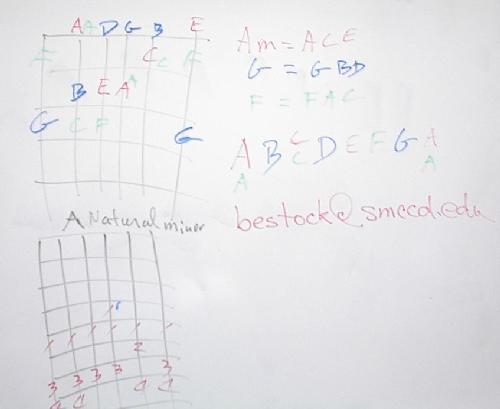 A A D G B E
F C C F
B E A A
G C F G
Am = A C E
G = G B D
F = F A C
A B C D E F G A
A C A
bestock@smccd.edu
A Natural minor
6
1 1 1 1 1 1
2
3 3 3 3 3
4 4 4 4